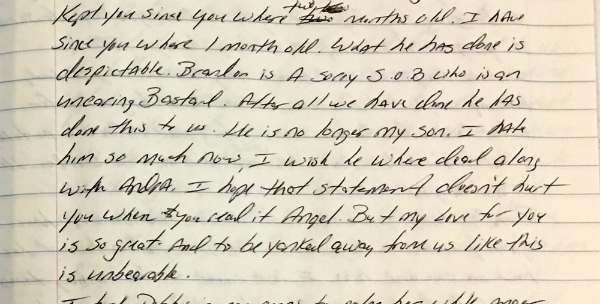 Kept you since you where two months old. I have
since you where 1 month old. What he has done is
despictable. Brandon is A sorry S.O.B who is an
uncaring Bastard. After all we have done he has
done this to us. He is no longer my son. I hate
him so much now, I wish he where dead along
with Andra. I hope that statement doesn't hurt
you when you read it Angel. But my love for you
is so great. And to be yanked away from us like this
is unbearable.